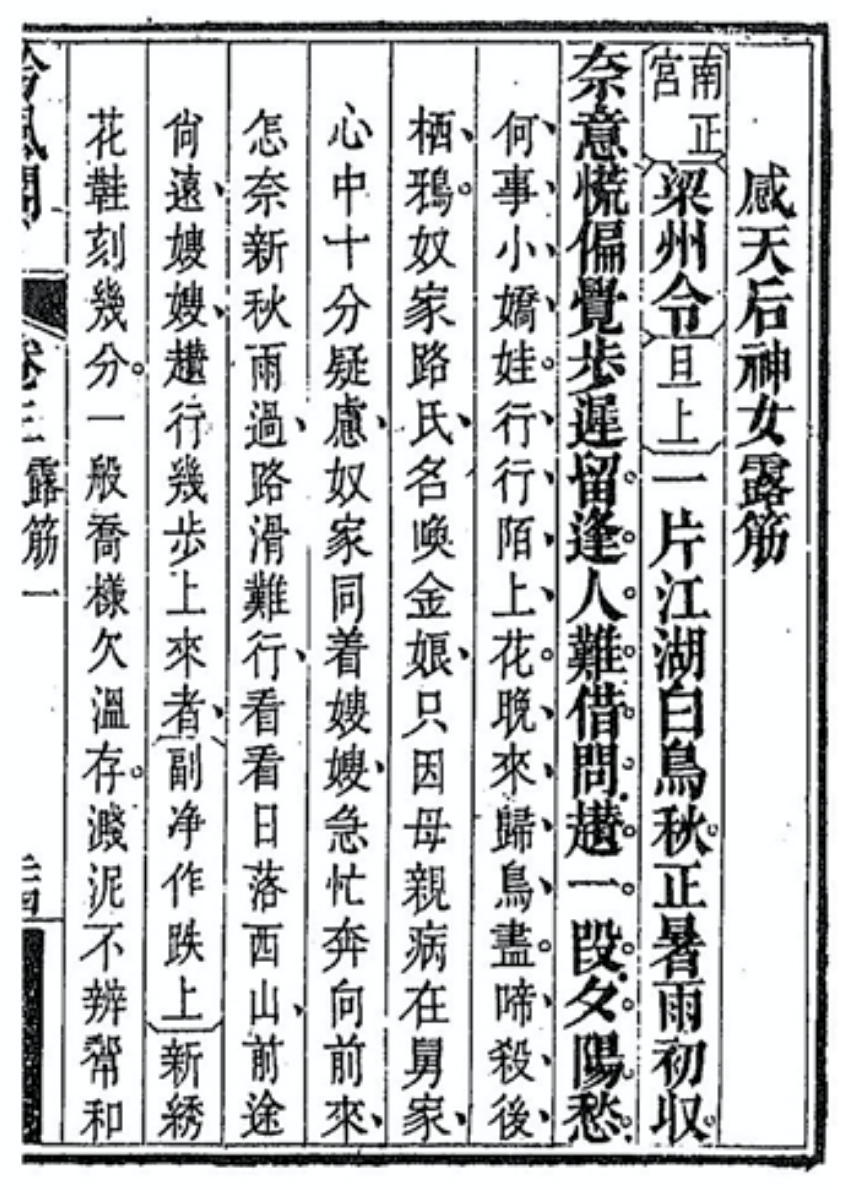 感天后神女露筋
南正宮 梁州令 旦上 一片江湖白鳥秋。正暑雨初収。
奈意慌偏覺步遲留。逢人難借問。趲一段夕陽愁。
何事小嬌娃。行行陌上花。晚來歸鳥盡。啼殺後
栖鴉。奴家路氏、名喚金娘、只因母親病在舅家、
心中十分疑慮、奴家同着嫂嫂、急忙奔向前來、
怎奈新秋雨過、路滑難行、看看日落西山、前途
尙遠、嫂嫂、趲行幾步上來者、副净作跌上 新綉
花鞋刻幾分。一般喬樣欠溫存。濺泥不辨幫和
吟風閣 卷三 露筋一